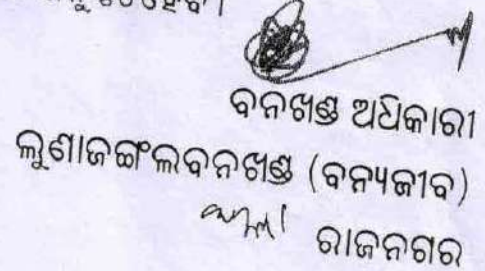 ବନଖଣ୍ଡ ଅଧିକାରୀ
ଲୁଣାଜଙ୍ଗଲବନଖଣ୍ଡ (ବନ୍ୟଜୀବ)
ରାଜନଗର